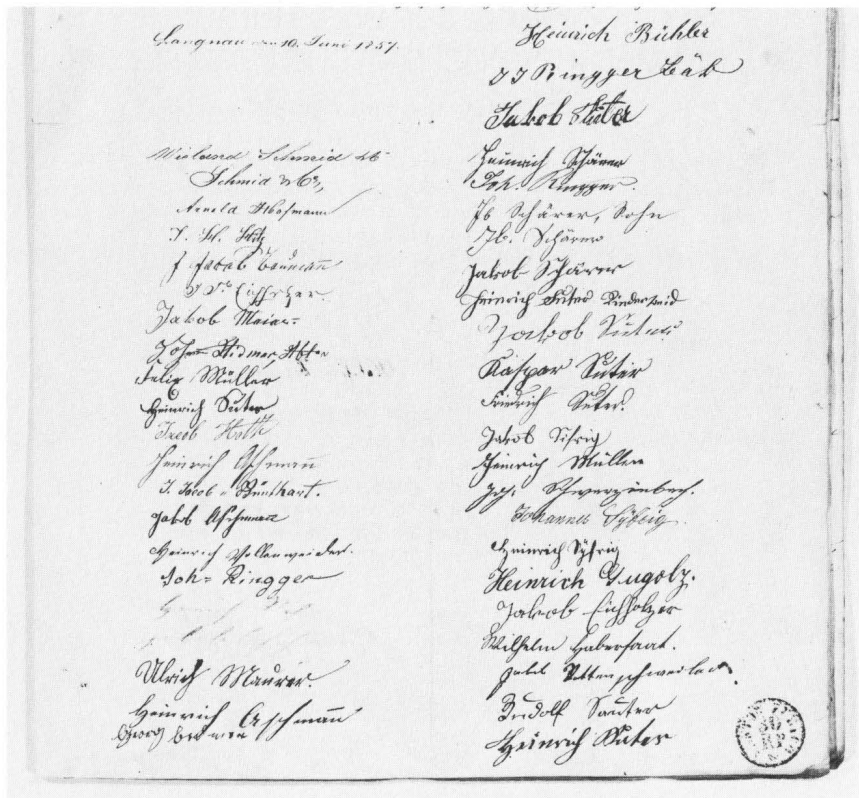 Langnau den 10. Juni 1857.
Wieland Schmid
Schmid
Arnold Aschmann
J. H.
J Jakob Baumann
Eichholzer
Jakob Meier
Widmer
Felix Müller
Heinrich Suter
Jacob Hoth
Heinrich Aschmann
J. Jacob Bünthart.
Jakob Aschmann
Heinrich Vollenweider.
Joh= Ringger
Ulrich Maurer.
Heinrich Aschmann
Georg
Heinrich Bühler
J J Ringger
Jakob Suter
Heinrich Schärer
Joh. Ringger.
Jb Schärer, Sohn
Jb. Schärer
Jakob Schärer
Heinrich Suter
Jakob Suter
Kaspar Suter
Friedrich Suter.
Jakob Sifrig
Heinrich Müller
Schwarzenbach.
Johannes Syfrig
Heinrich Syfrig
Heinrich Gugolz.
Jakob Eichholzer
Wilhelm Habersaat.
Jakob Vettenschweiler
Rudolf Sauter
Heinrich Suter